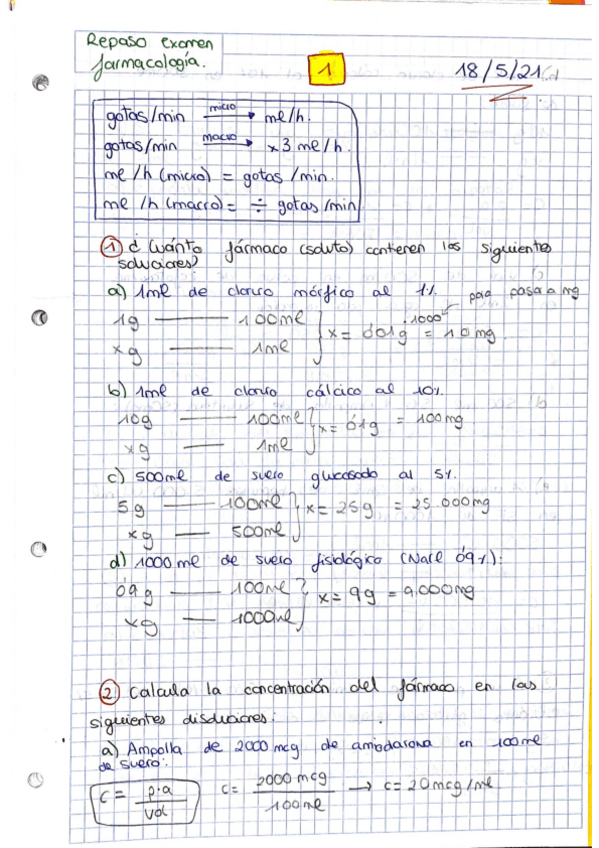 Repaso examen
farmacología.
1
18/5/21
gotas/min micro → ml/h.
gotas/min macro → x3 ml/h.
ml/h (micro) = gotas/min.
ml/h (macro) = ÷ gotas/min
1 ¿Cuánto fármaco (soluto) contienen las siguientes
soluciones?
a) 1ml de cloruro mórfico al 1%. para pasar a mg
1g — 100ml
xg — 1ml
x = 0'01g ·1000 = 10mg.
b) 1ml de cloruro cálcico al 10%.
10g — 100ml
xg — 1ml
x = 0'1g = 100mg
c) 500ml de suero glucosado al 5%.
5g — 100ml
xg — 500ml
x = 25g = 25.000mg
d) 1000ml de suero fisiológico (NaCl 0'9%):
0'9g — 100ml
xg — 1000ml
x = 9g = 9.000mg
2 Calcula la concentración del fármaco en las
siguientes disoluciones:
a) Ampolla de 2000 mcg de amiodarona en 100ml
de suero:
C = p.a / vol
C = 2000 mcg / 100ml → C = 20mcg/ml